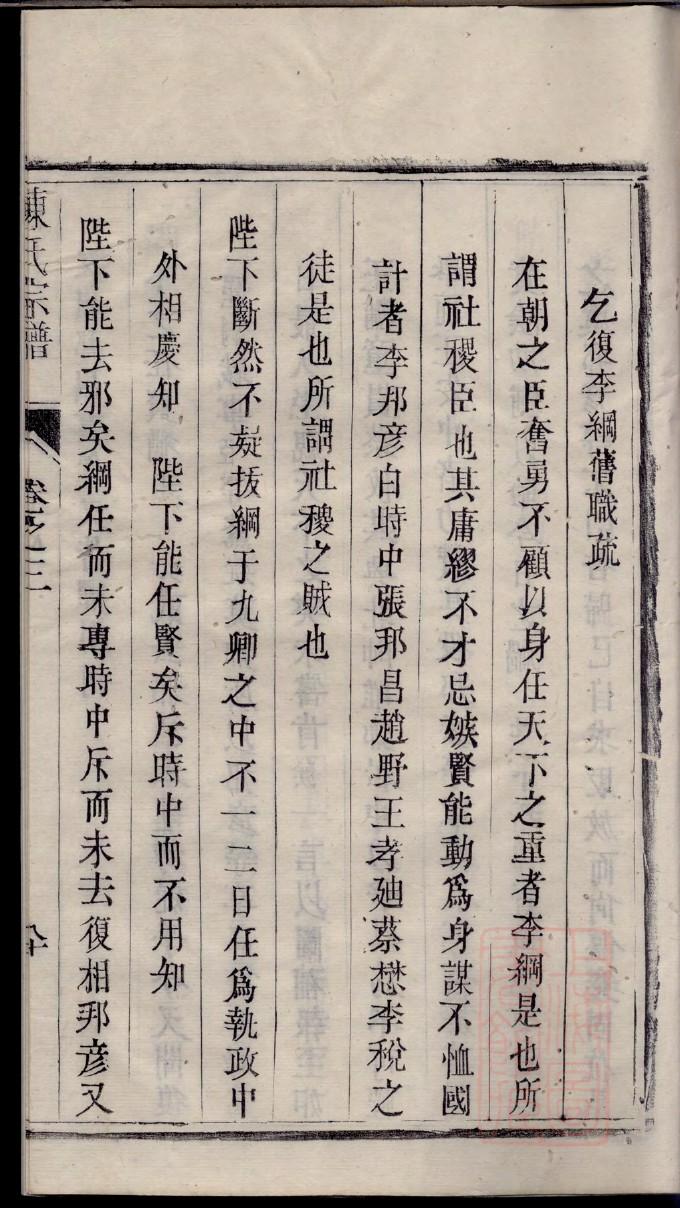 乞復李綱舊職疏
在朝之臣奮勇不顧以身任天下之重者李綱是也所
謂社稷臣也其庸繆不才忌嫉賢能動爲身謀不恤國
計者李邦彦白時中張邦昌趙野王孝廸蔡懋李稅之
徒是也所謂社稷之賊也
陛下斷然不疑拔綱于九卿之中不一二日任爲執政中
外相慶知 陛下能任賢矣斥時中而不用知
陛下能去邪矣綱任而未專時中斥而未去復相邦彦又
陳氏宗譜
卷之三
八十